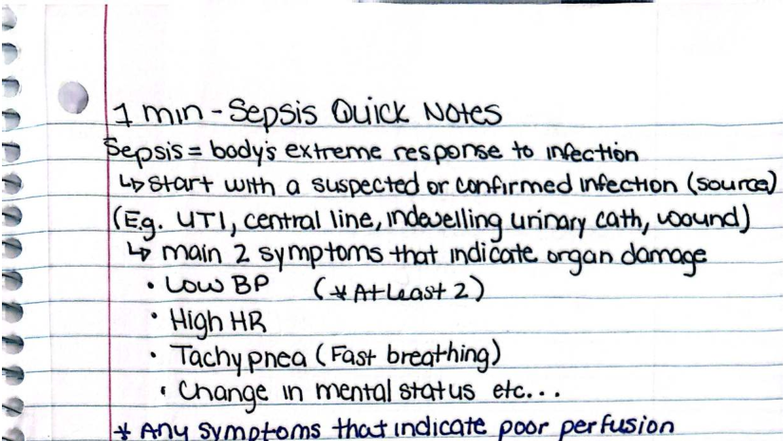 1 min - Sepsis Quick Notes
Sepsis = body's extreme response to infection
↳ start with a suspected or confirmed infection (source)
(E.g. UTI, central line, indewelling urinary cath, wound)
↳ main 2 symptoms that indicate organ damage
• Low BP (* At least 2)
• High HR
• Tachypnea (Fast breathing)
• Change in mental status etc...
* Any symptoms that indicate poor perfusion